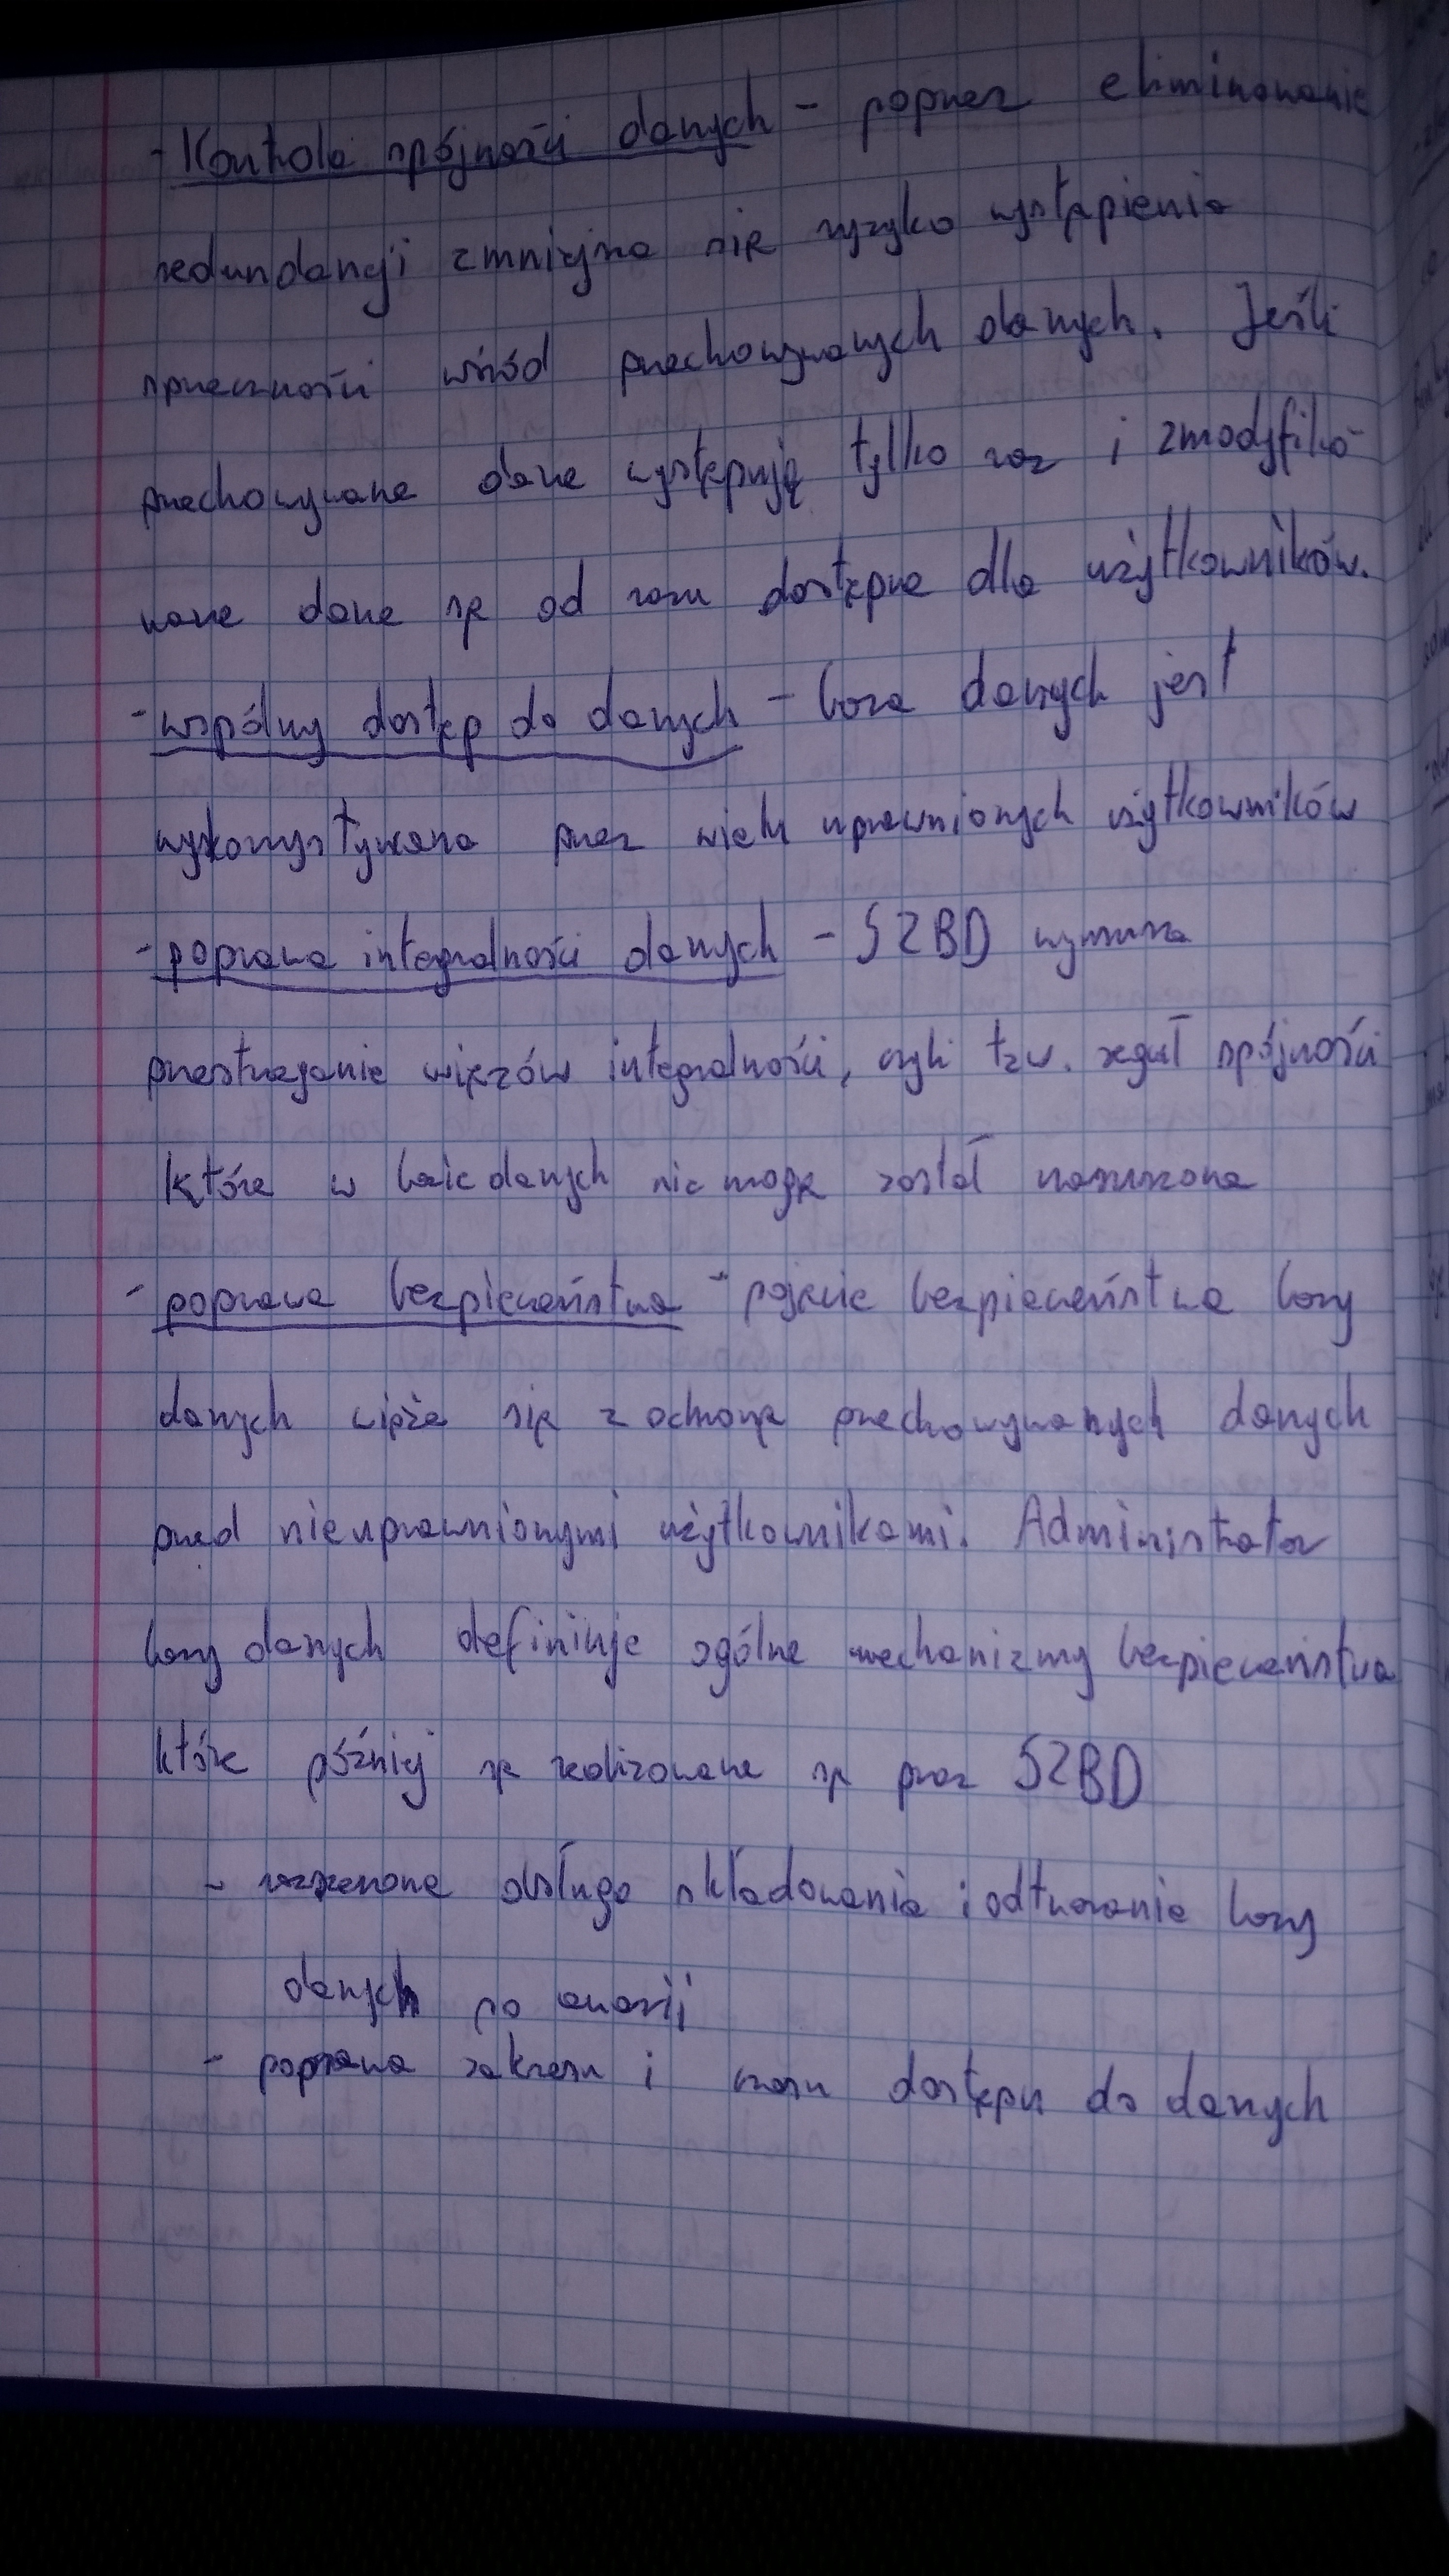 - Kontrola spójności danych - poprzez eliminowanie
redundancji zmniejsza się ryzyko wystąpienia
sprzeczności wśród przechowywanych danych. Jeśli
przechowywane dane występują tylko raz i zmodyfiko-
wane dane są od razu dostępne dla użytkowników.
- wspólny dostęp do danych - baza danych jest
wykorzystywana przez wielu uprawnionych użytkowników
- poprawa integralności danych - SZBD wymusza
przestrzeganie więzów integralności, czyli tzw. reguł spójności
które w bazie danych nie mogą zostać naruszone
- poprawa bezpieczeństwa - pojęcie bezpieczeństwa bazy
danych wiąże się z ochroną przechowywanych danych
przed nieuprawnionymi użytkownikami. Administrator
bazy danych definiuje ogólne mechanizmy bezpieczeństwa
które później są realizowane są przez SZBD
- obsługa składowania i odtwarzanie bazy
danych po awarii
- poprawa zakresu i czasu dostępu do danych